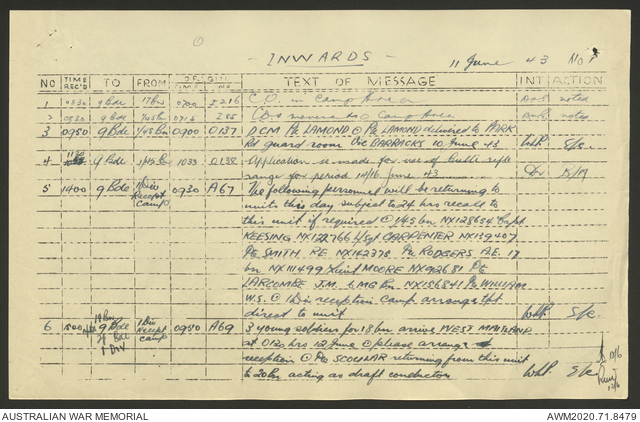 - INWARDS -
11 June 43 No 1
NO TIME REC'D TO FROM ORIGIN TIME NO TEXT OF MESSAGE INT ACTION
1 0530 9 Bde 17 Bn 0700 I216 C.O. in Camp Area noted
2 0530 9 Bde 0715 I 85 Camp Area noted
3 0950 9 Bde 1/45 Bn 0900 0137 DCM Pte LAMOND @ Pte LAMOND delivered to PARK
Rd guard room Vic BARRACKS 10 June 43 WhP. S/c.
4 9 Bde 1/45 Bn 1033 0138 Application is made for use of rifle
range for period 10/16 June 43
5 1400 9 Bde 1 Div Recept Camp 0930 A67 The following personnel will be returning to
units this day subject to 24 hrs recall to
this unit if required @ 1/45 bn NX128654 Capt
KEESING NX122766 L/Sgt CARPENTER NX139407
Pte SMITH. R.E. NX142375 Pte RODGERS A.E. 17
bn NX111499 Lieut MOORE NX92681 Pte
LARCOMBE J.M. 6 MG Bn. NX156841 Pte WILLIAM
W.S. @ 1 Div reception Camp arrange tpt
direct to unit WhP. S/c.
6 1500 18 Bn 9 Bde 1 Div 1 Div Recept Camp 0950 A69 3 young soldiers for 18 bn arrive WEST MAITLAND
at 0120 hrs 12 June @ please arrange
reception @ Pte SCOULLAR returning from this unit
to 20 Bn acting as draft conductor WhP. S/c
AUSTRALIAN WAR MEMORIAL
AWM2020.71.8479